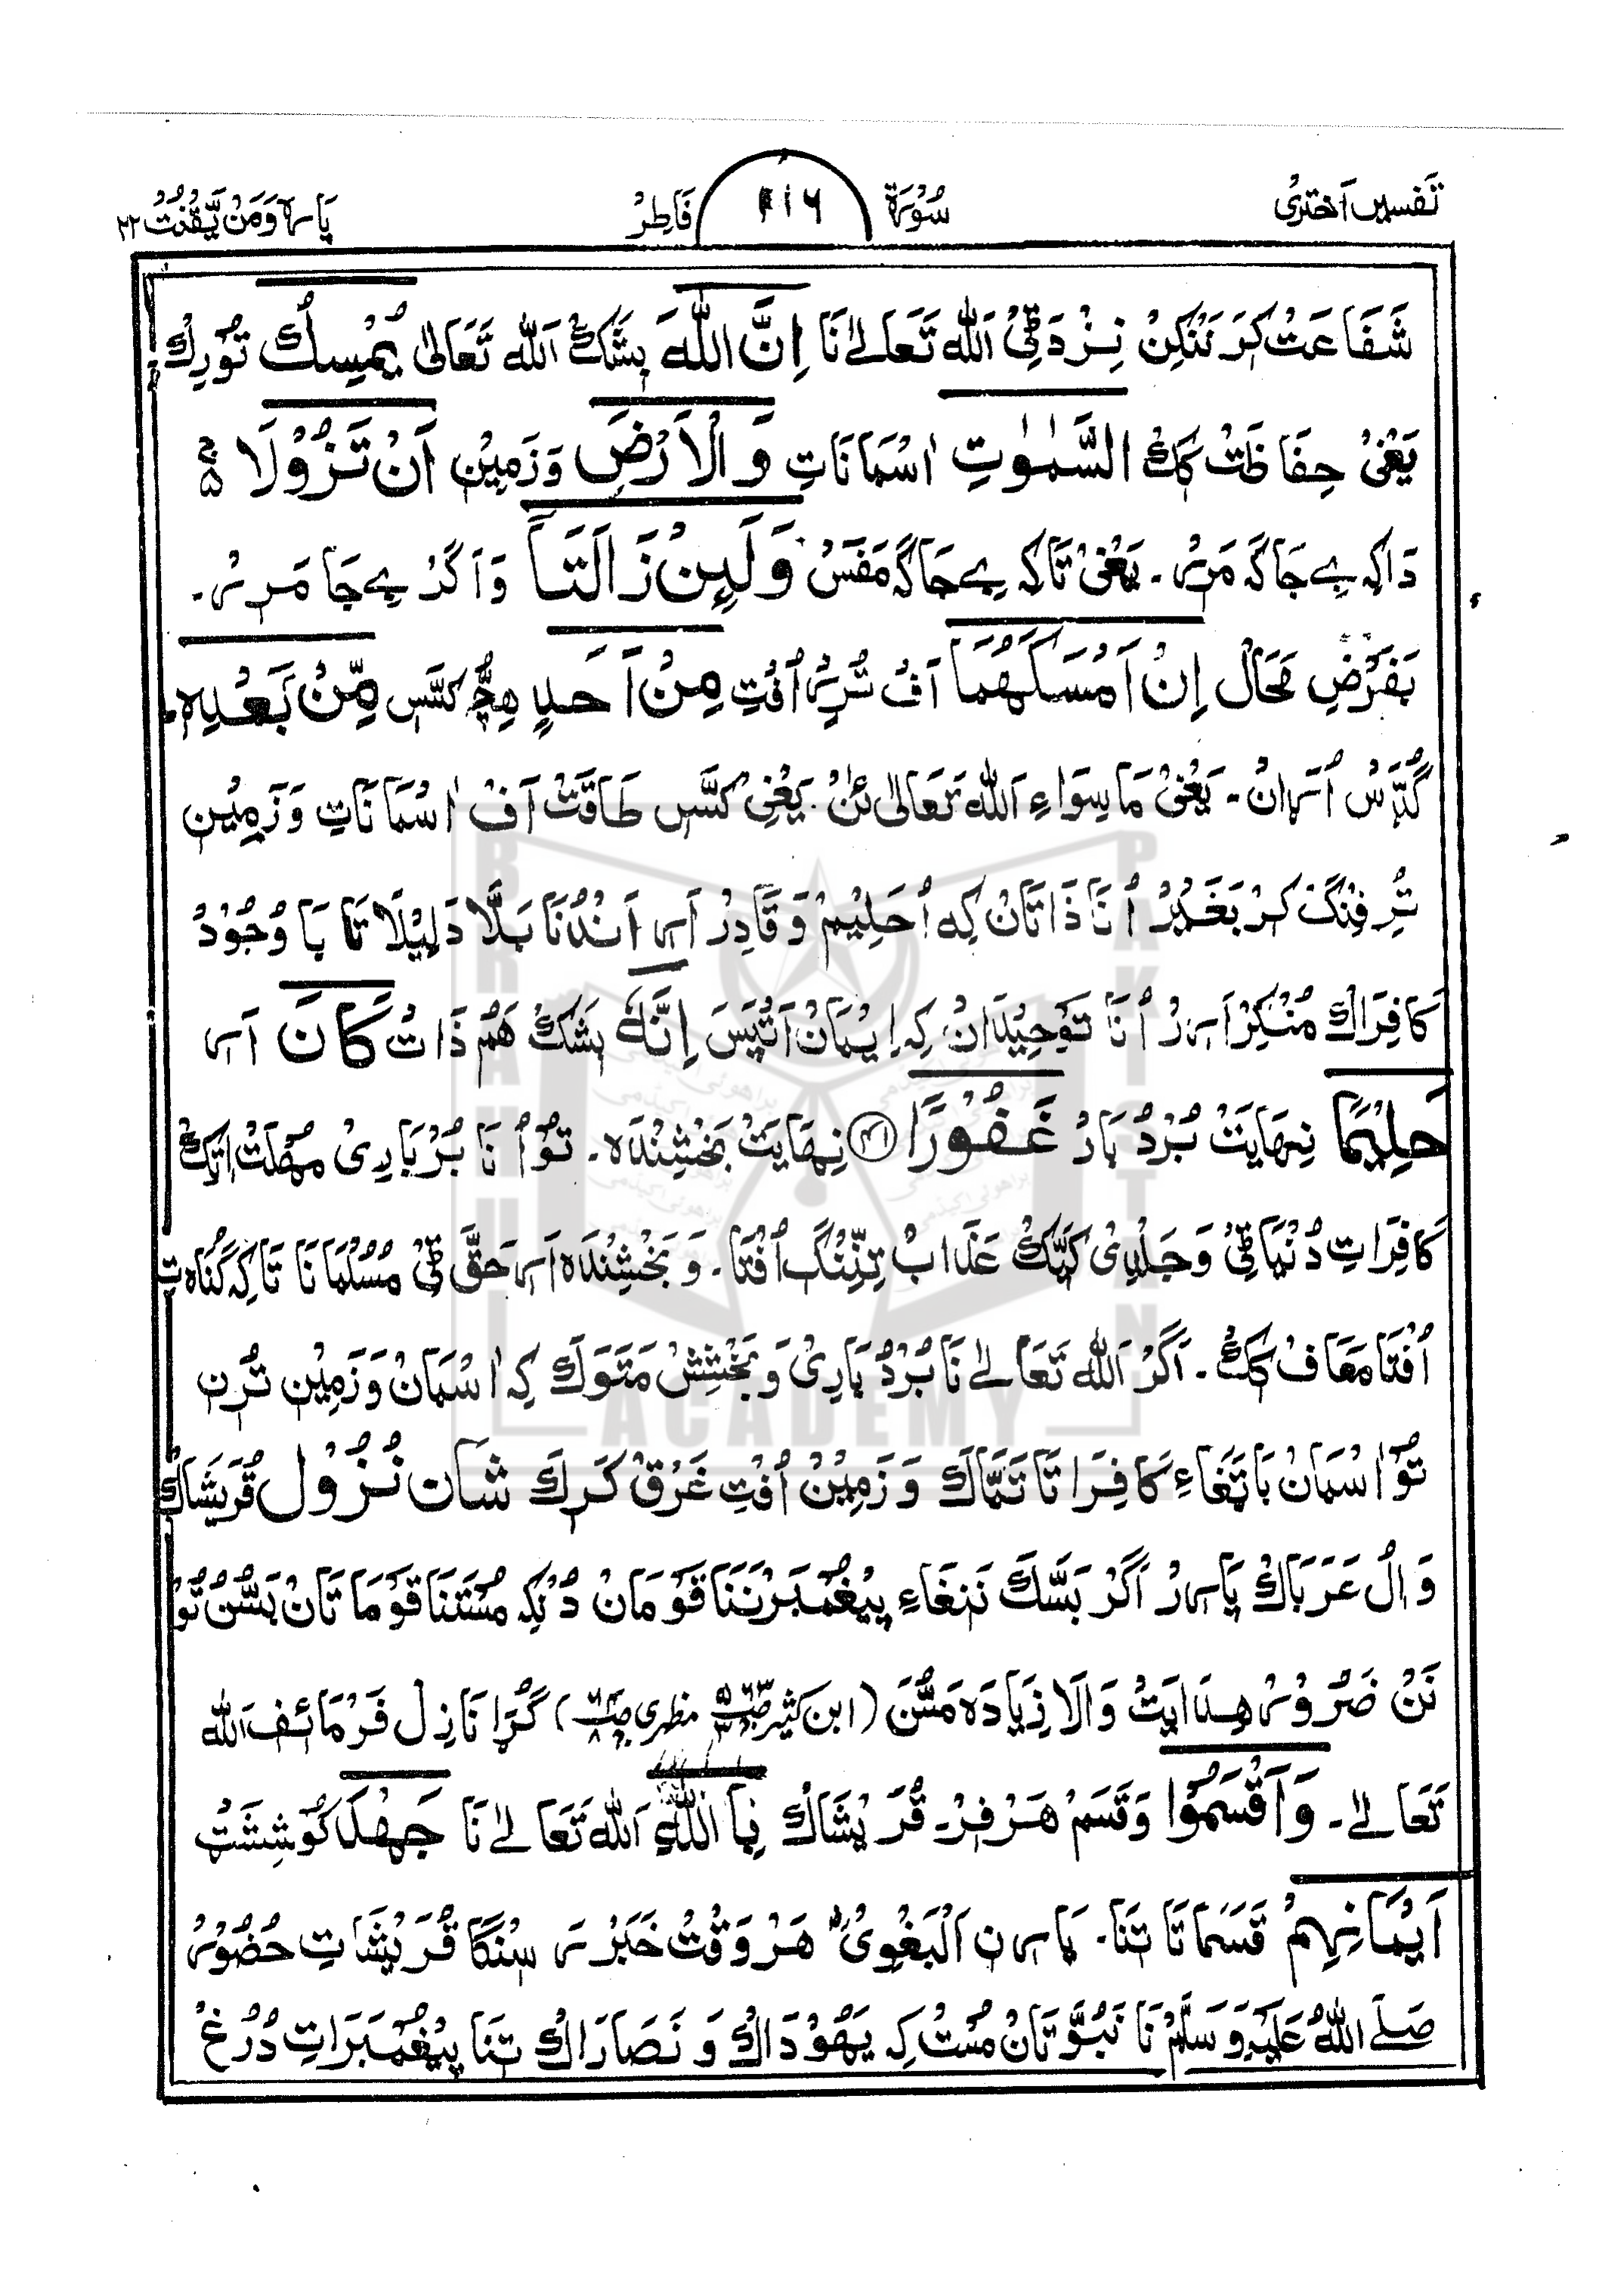 تَفسیرِ اَختری سُورۃ ۴۱۶ فَاطِر پَارہ وَمَنْ یَّقْنُتْ ۲۲
شَفَاعَتْ کَرَ نَنْکِنْ نِزْدَ ٹِیْ اَللہ تَعَالےٰ نَا اِنَّ اللّٰهَ بِشَکْ اَللہ تَعَالیٰ یُمْسِكُ تَوْرِكْ
یَعْنِیْ حِفَاظَتْ کِكْ السَّمٰوٰتِ اٰسْمَانَاتِ وَالْاَرْضَ وَ زَمِیْنِ اَنْ تَزُوْلَا
دَاکِہ بے جَاگَہ مَرِیْر۔ یَعْنِیْ تَاکِہ بے جَاگَہ مَفَسْ وَلَئِنْ زَالَتَا وَ اَگَرْ بے جَا مَرِیْر۔
بَفَرْضِ مَحَالْ اِنْ اَمْسَكَهُمَا اَفْ تُورِیْر اُفْتِ مِنْ اَحَدٍ ہِچُّ کَسَّس مِّنْۢ بَعْدِهٖ۔
گُڈَّسْ اُرَانْ۔ یَعْنِیْ مَاسِوَاءِ اَللہ تَعَالیٰ نَنْ۔ یَعْنِیْ کَسَّس طَاقَتْ اَفْ اٰسْمَانَاتِ وَ زَمِیْنِ
تُرِفِنْگ کِہ بَغَیْرْ اُنَا ذَاتَانْ کِہ اُ حَلِیْمْ وَ قَادِرْ اَرِ اَنْدُنَا بَلَّا دَلِیْلَاتَا بَا وُجُوْدْ
کَافِرَاكْ مُنْکِرْ اَرِرْ اُنَا تَوْحِیْدَانْ کِہ اِیْمَانْ اَتَپَسَ اِنَّهٗ بَشَكْ ھَمْ ذَاتْ كَانَ اَرِ
حَلِیْمًا نِہَایَتْ بُرْدْ بَارْ غَفُوْرًا ﴿۴۱﴾ نِہَایَتْ بَخْشِنْدَہ۔ تَوْ اُنَا بُرْبَارِیْ مُھْلَتْ اِتِكْ
کَافِرَاتِ دُنْیَاٹِیْ وَ جَلْدِیْ کَپَّكْ عَذَابْ تِنِّنْگ اُفْتَا۔ وَ بَخْشِنْدَہ اَرِ حَقَّ ٹِیْ مُسُلْمَانَا تَاکِہ گُنَاہ تِ
اُفْتَا مَعَافْ کِكْ۔ اَگَرْ اَللہ تَعَالےٰ نَا بُرْدْبَارِیْ وَ بَخْشِشْ مَتَوَكْ کِہ اٰسْمَانْ وَ زَمِیْنِ تُرِن
تَوْ اٰسْمَانْ بَاتَغَاءِ کَافِرَا تَا تَمَّاكْ وَ زَمِیْنْ اُفْتِ غَرْقْ کَرِكْ شَان نُزُوْل قُرَیْشَاكْ
وَ اِلْ عَرَبَاكْ پَارِرْ اَگَرْ بَسَّكْ نَنِغَاءِ پِیْغُمْبَرْ نَنَا قَوْمَانْ دُنْکِہ مُسْتَنَا قَوْمَا تَانْ بَسُّنْ تَوْ
نَنْ ضَرُوْر ھِدَایَتْ وَالَا زِیَادَہ مَسُّنَ (ابن کثیر مظہری) گُڑَا نَازِلْ فَرْمَائِفْ اَللہ
تَعَالےٰ۔ وَاَقْسَمُوْا وَ قَسَمْ ھَرْفِرْ۔ قُرَیْشَاكْ بِاللّٰهِ اَللہ تَعَالےٰ نَا جَهْدَ کَوْشِشَتْ
اَیْمَانِهِمْ قَسَمَاتَا تَنَا۔ پَارِن اَلْبَغْوِیْ ؒ ھَرْ وَقْتْ خَبَرْ رَسِنْگَا قُرَیْشَاتِ حُضُوْر
صَلَے اللہُ عَلَیْہِ وَ سَلَّمْ نَا نَبُوَّتَانْ مُسْتْ کِہ یَھُوْدَاكْ وَ نَصَارَاكْ تَنَا پِیْغُمْبَرَاتِ دُرُغْ
BRAHUI ACADEMY PAKISTAN
براھوئی اکیڈمی